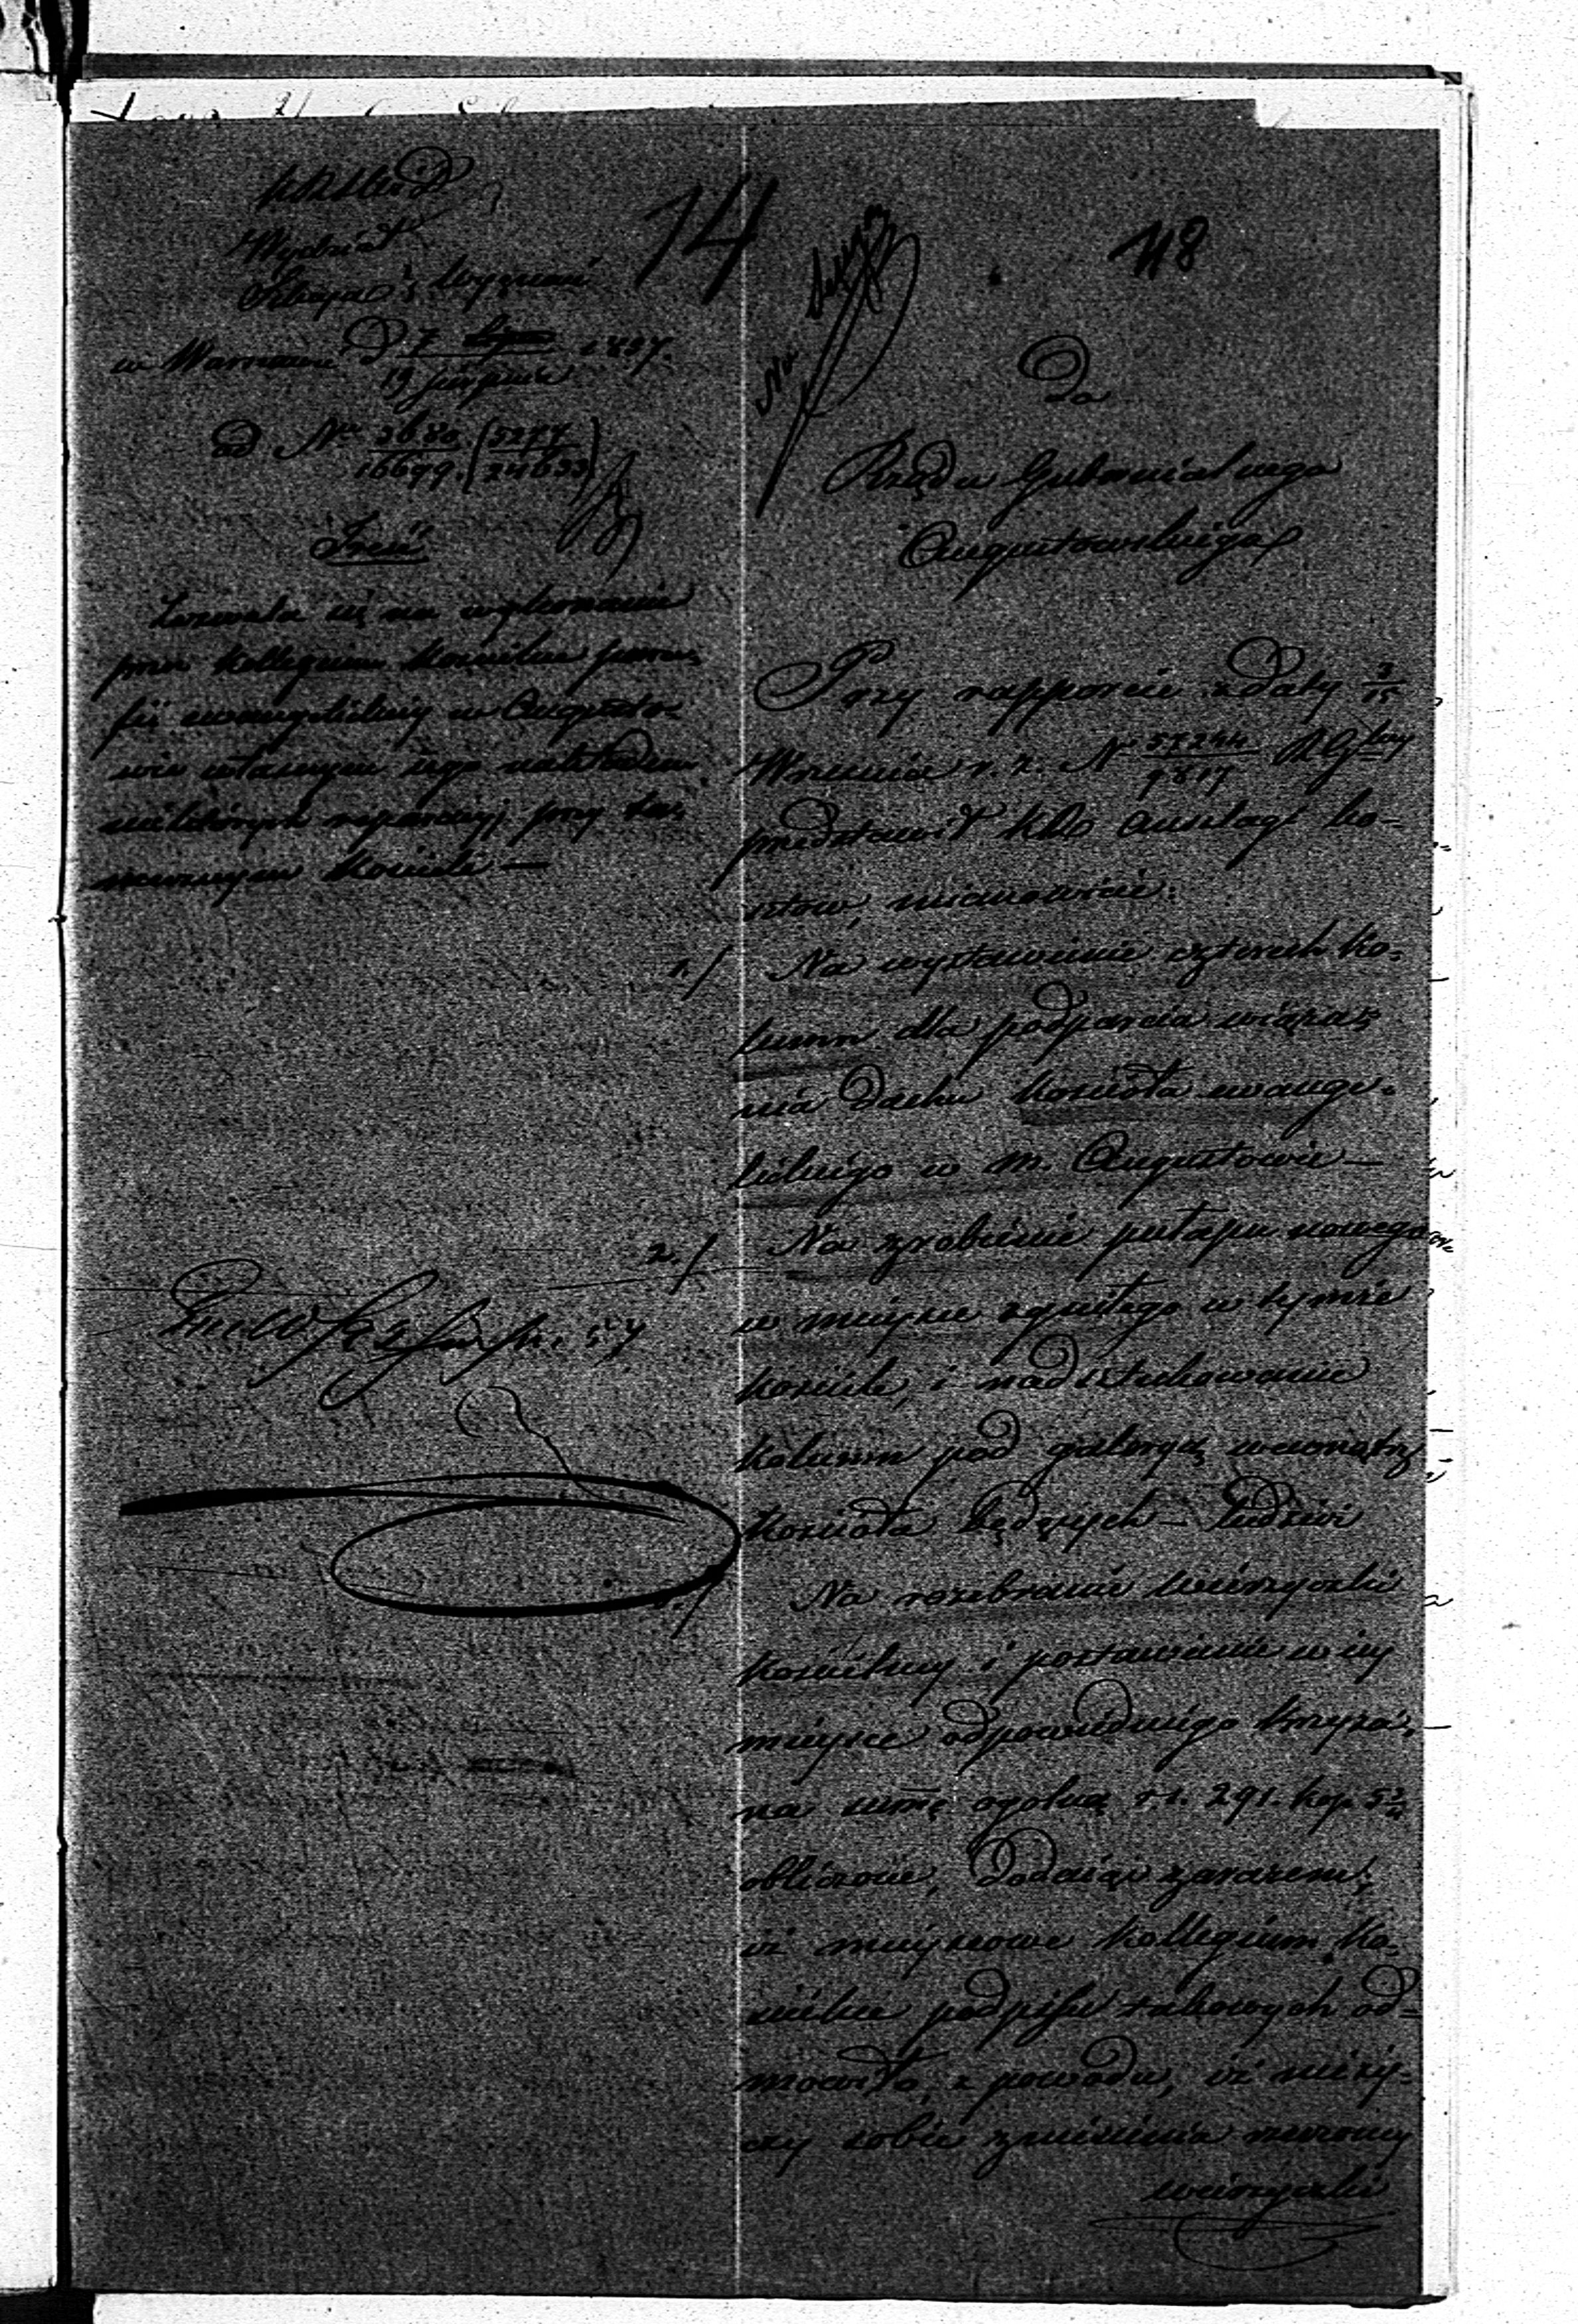 14
118
Wydział
w Warszawie D 7 1857.
19 sierpnia
ad Nr 3680 (5277)
16699. (24633)
Treść
Zezwala się na wykonanie
przez Kollegium Kościelne para-
fii ewangelickiej w Augusto-
wie własnym jego nakładem
niektórych reperacyj przy ta-
mecznym Kościele —
Do
Rządu Gubernialnego
Augustowskiego
Przy rapporcie z daty 3/15
Września r. z. Nr 57244/9817
przedstawił anszlagi ko-
sztów, mianowicie:
1./ Na wystawienie czterech ko-
lumn dla podparcia wiąza-
nia dachu kościoła ewange-
lickiego w m. Augustowie —
2./ Na zrobienie pułapu nowego
w miejsce zgniłego w tymże
kościele, i nadsztukowanie
kolumn pod galeryą wewnątrz
Kościoła będących —
Na rozebranie wieżyczki
kościelnej i postawienie w iey
miejsce odpowiedniego krzyża,
na summę ogólną rs. 291. kop. 5 3/4
obliczone, dodaiąc zarazem,
iż miejscowe Kollegium Ko-
ścielne podpisu takowych od-
mówiło, z powodu, iż nieży-
czy sobie zniesienia
wieżyczki